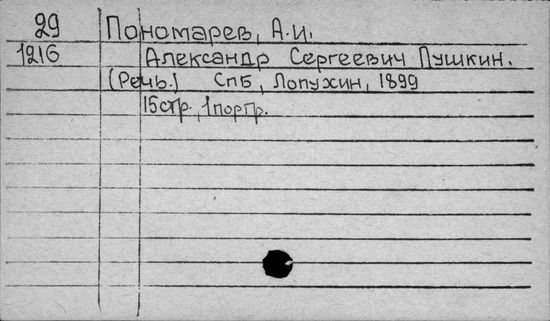 29 Пономарев, А.И.
1216 Александр Сергеевич Пушкин.
(Речь.) СПБ, Лопухин, 1899
15стр., 1портр.